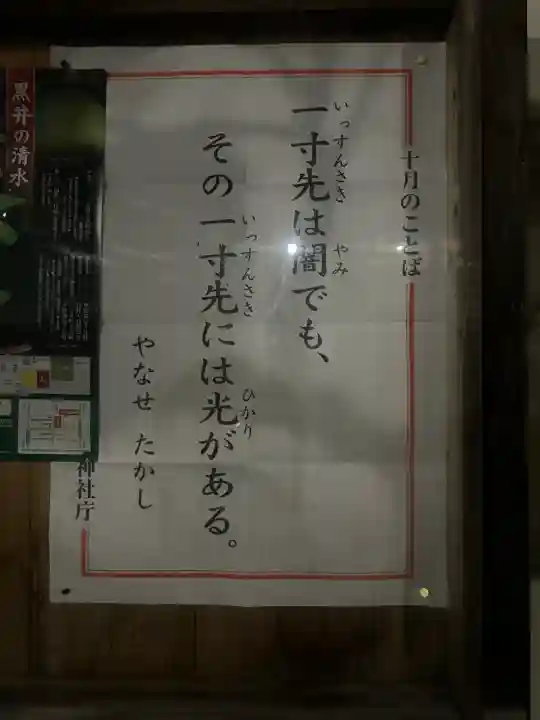 十月のことば
一寸先は闇でも、
いっすんさき
やみ
その一寸先には光がある。
いっすんさき
ひかり
やなせ たかし
神社庁
黒井の清水